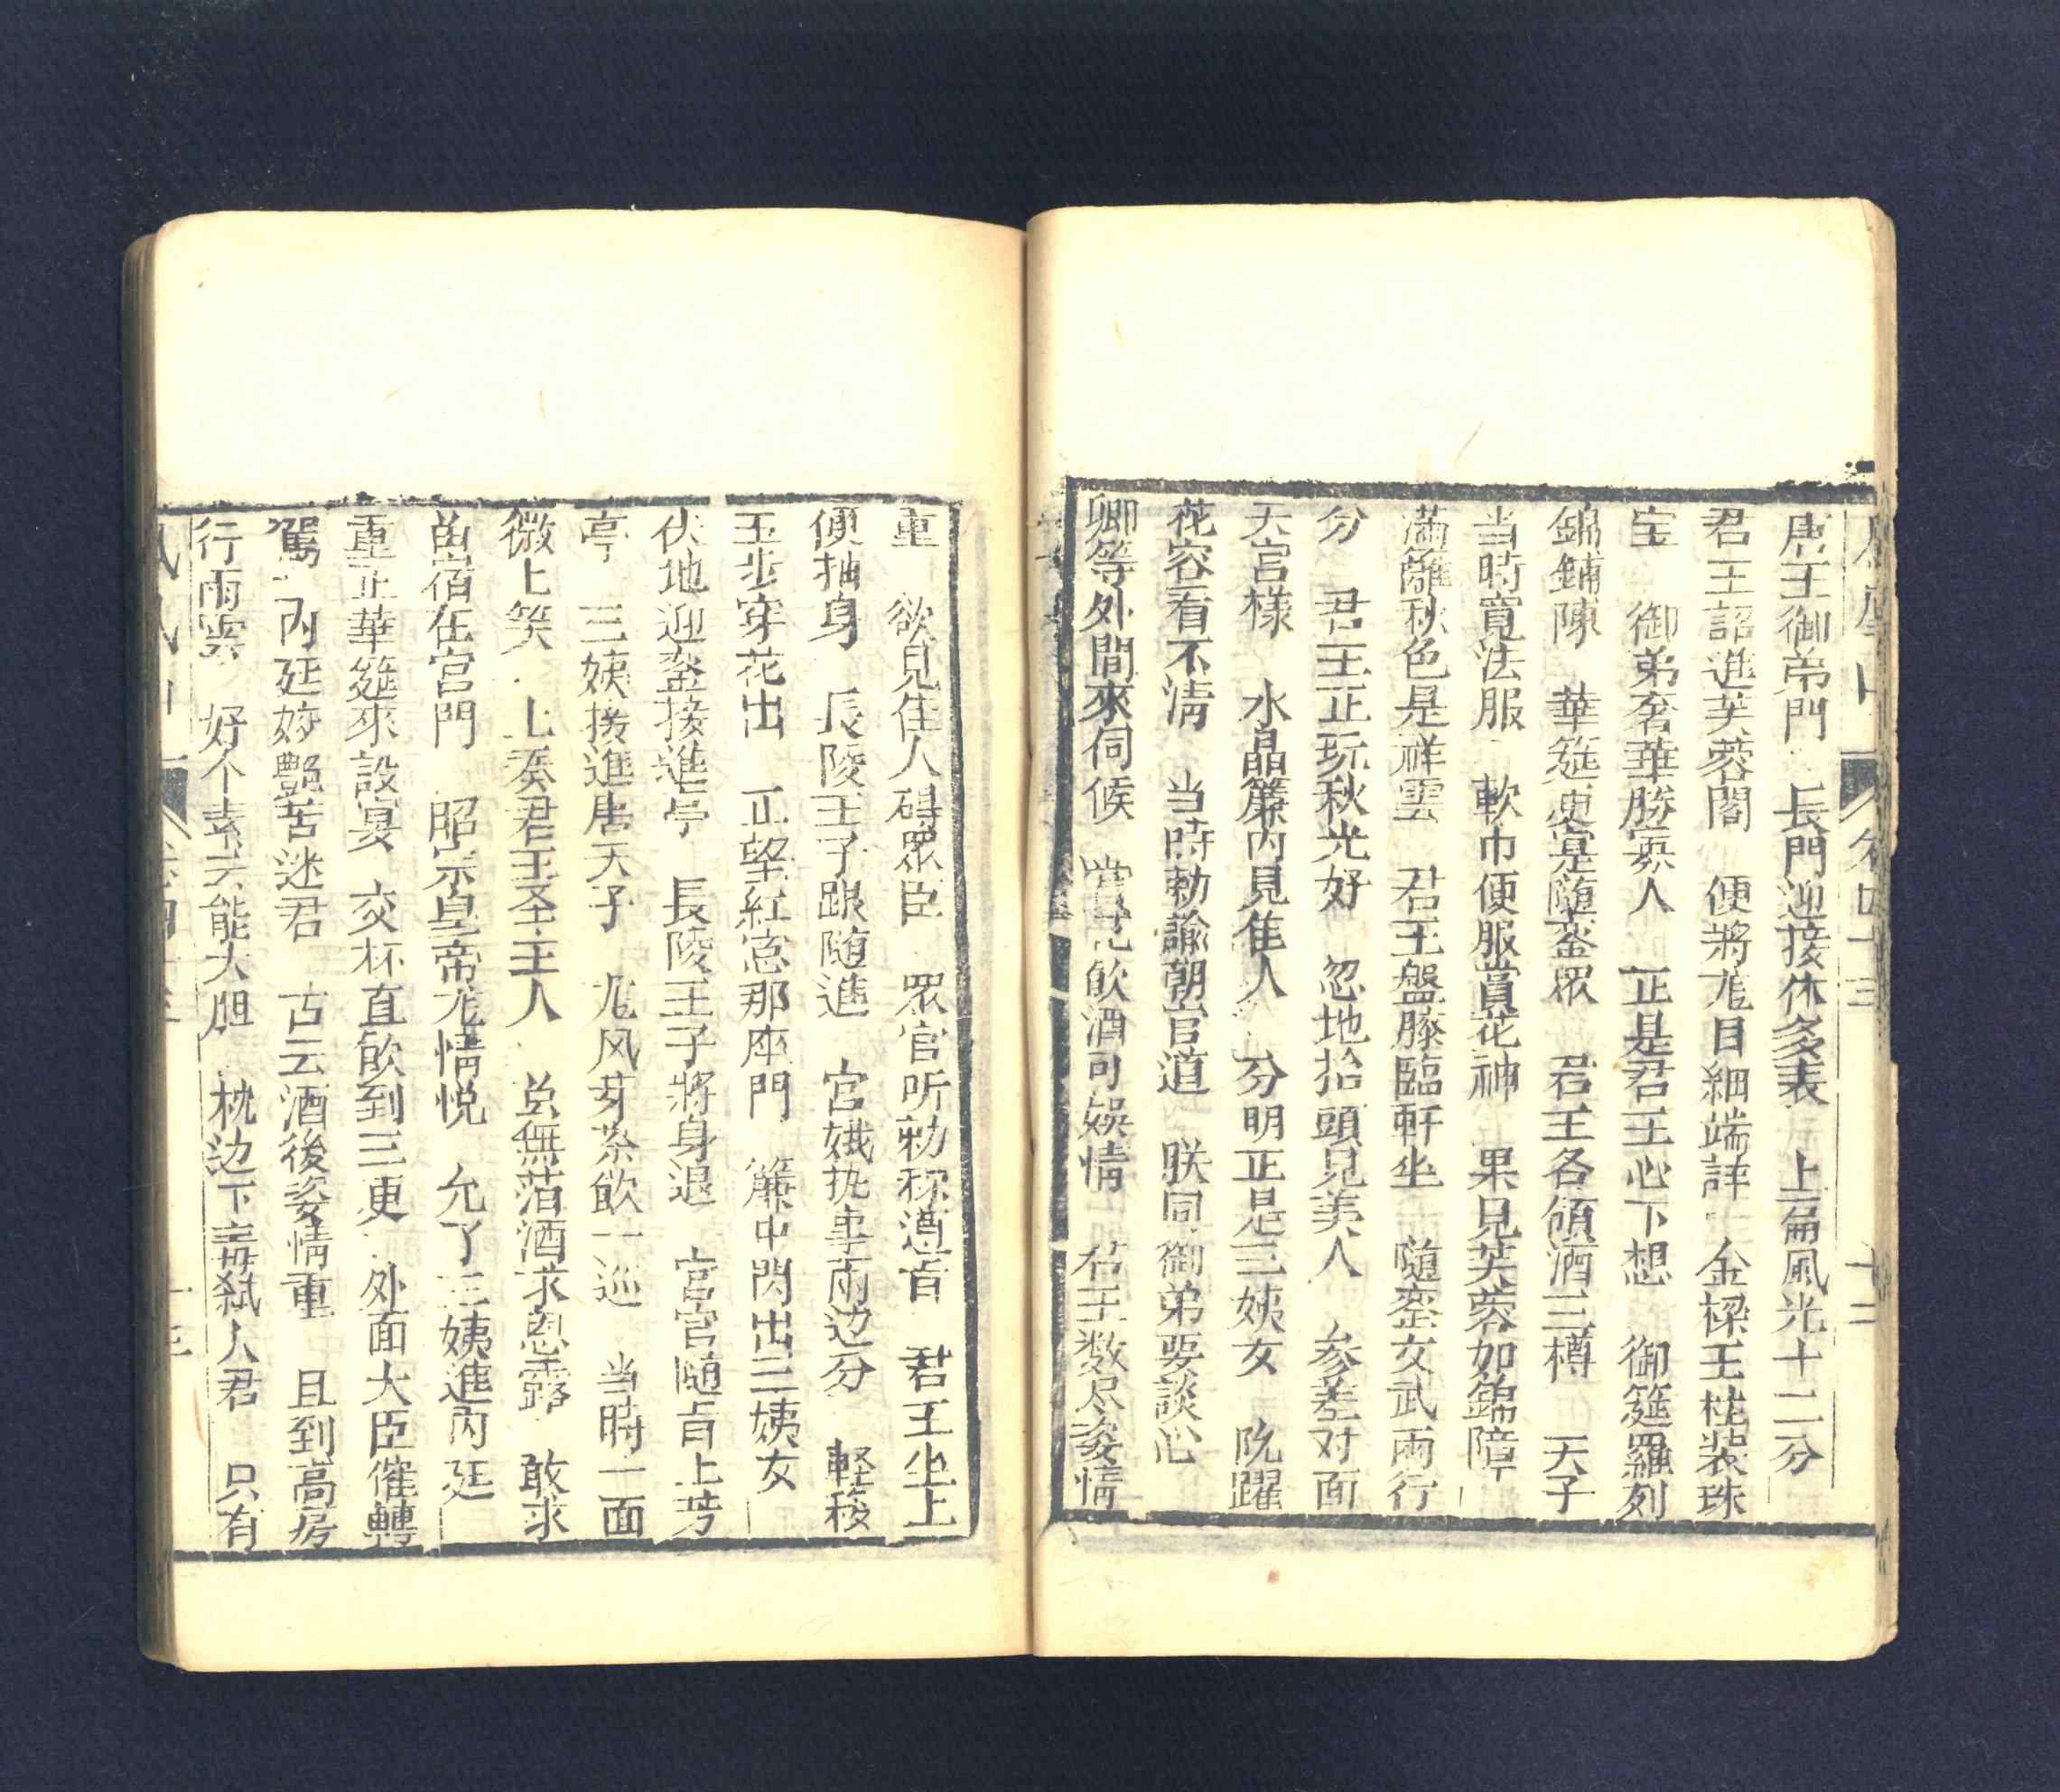 卷四十三
十二
唐王御弟門 長門迎接休多表 上篇風光十二分
君王詔進芙蓉閣 便將龙目細端詳 金樑玉柱装珠
宝 御弟奢華勝寡人 正是君王心下想 御筵羅列
錦鋪陳 華筵更宴随銮眾 君王各領酒三樽 天子
当時寬法服 軟巾便服賞花神 果見芙蓉如錦障
满籬秋色是祥雲 君王盤膝臨軒坐 隨銮文武兩行
分 君王正玩秋光好 忽地抬頭見美人 参差对面
天宫樣 水晶簾内見佳人 分明正是三姨女 阮躍
花容看不清 当時勅諭朝官道 朕同御弟要談心
卿等外間來伺候 飲酒可娱情 君王数尽姿情
重 欲見佳人碍眾臣 眾官听勅称遵旨 君王坐上
便抽身 長陵王子跟随進 宫娥执事両边分 軽移
玉步穿花出 正望紅窓那座門 簾中閃出三姨女
伏地迎銮接進亭 長陵王子將身退 宫官隨旨上芳
亭 三姨接進唐天子 龙风芽茶飲一巡 当時一面
微上笑 上奏君王圣主人 总無菭酒求恩露 敢求
畄宿在宫門 昭宗皇帝龙情悦 允了三姨進内廷
重正華筵來設宴 交杯直飲到三更 外面大臣催轉
駕 内廷妖艷苦迷君 古云酒後姿情重 且到高房
行雨雲 好个素云能大胆 枕边下毒弒人君 只有
十三